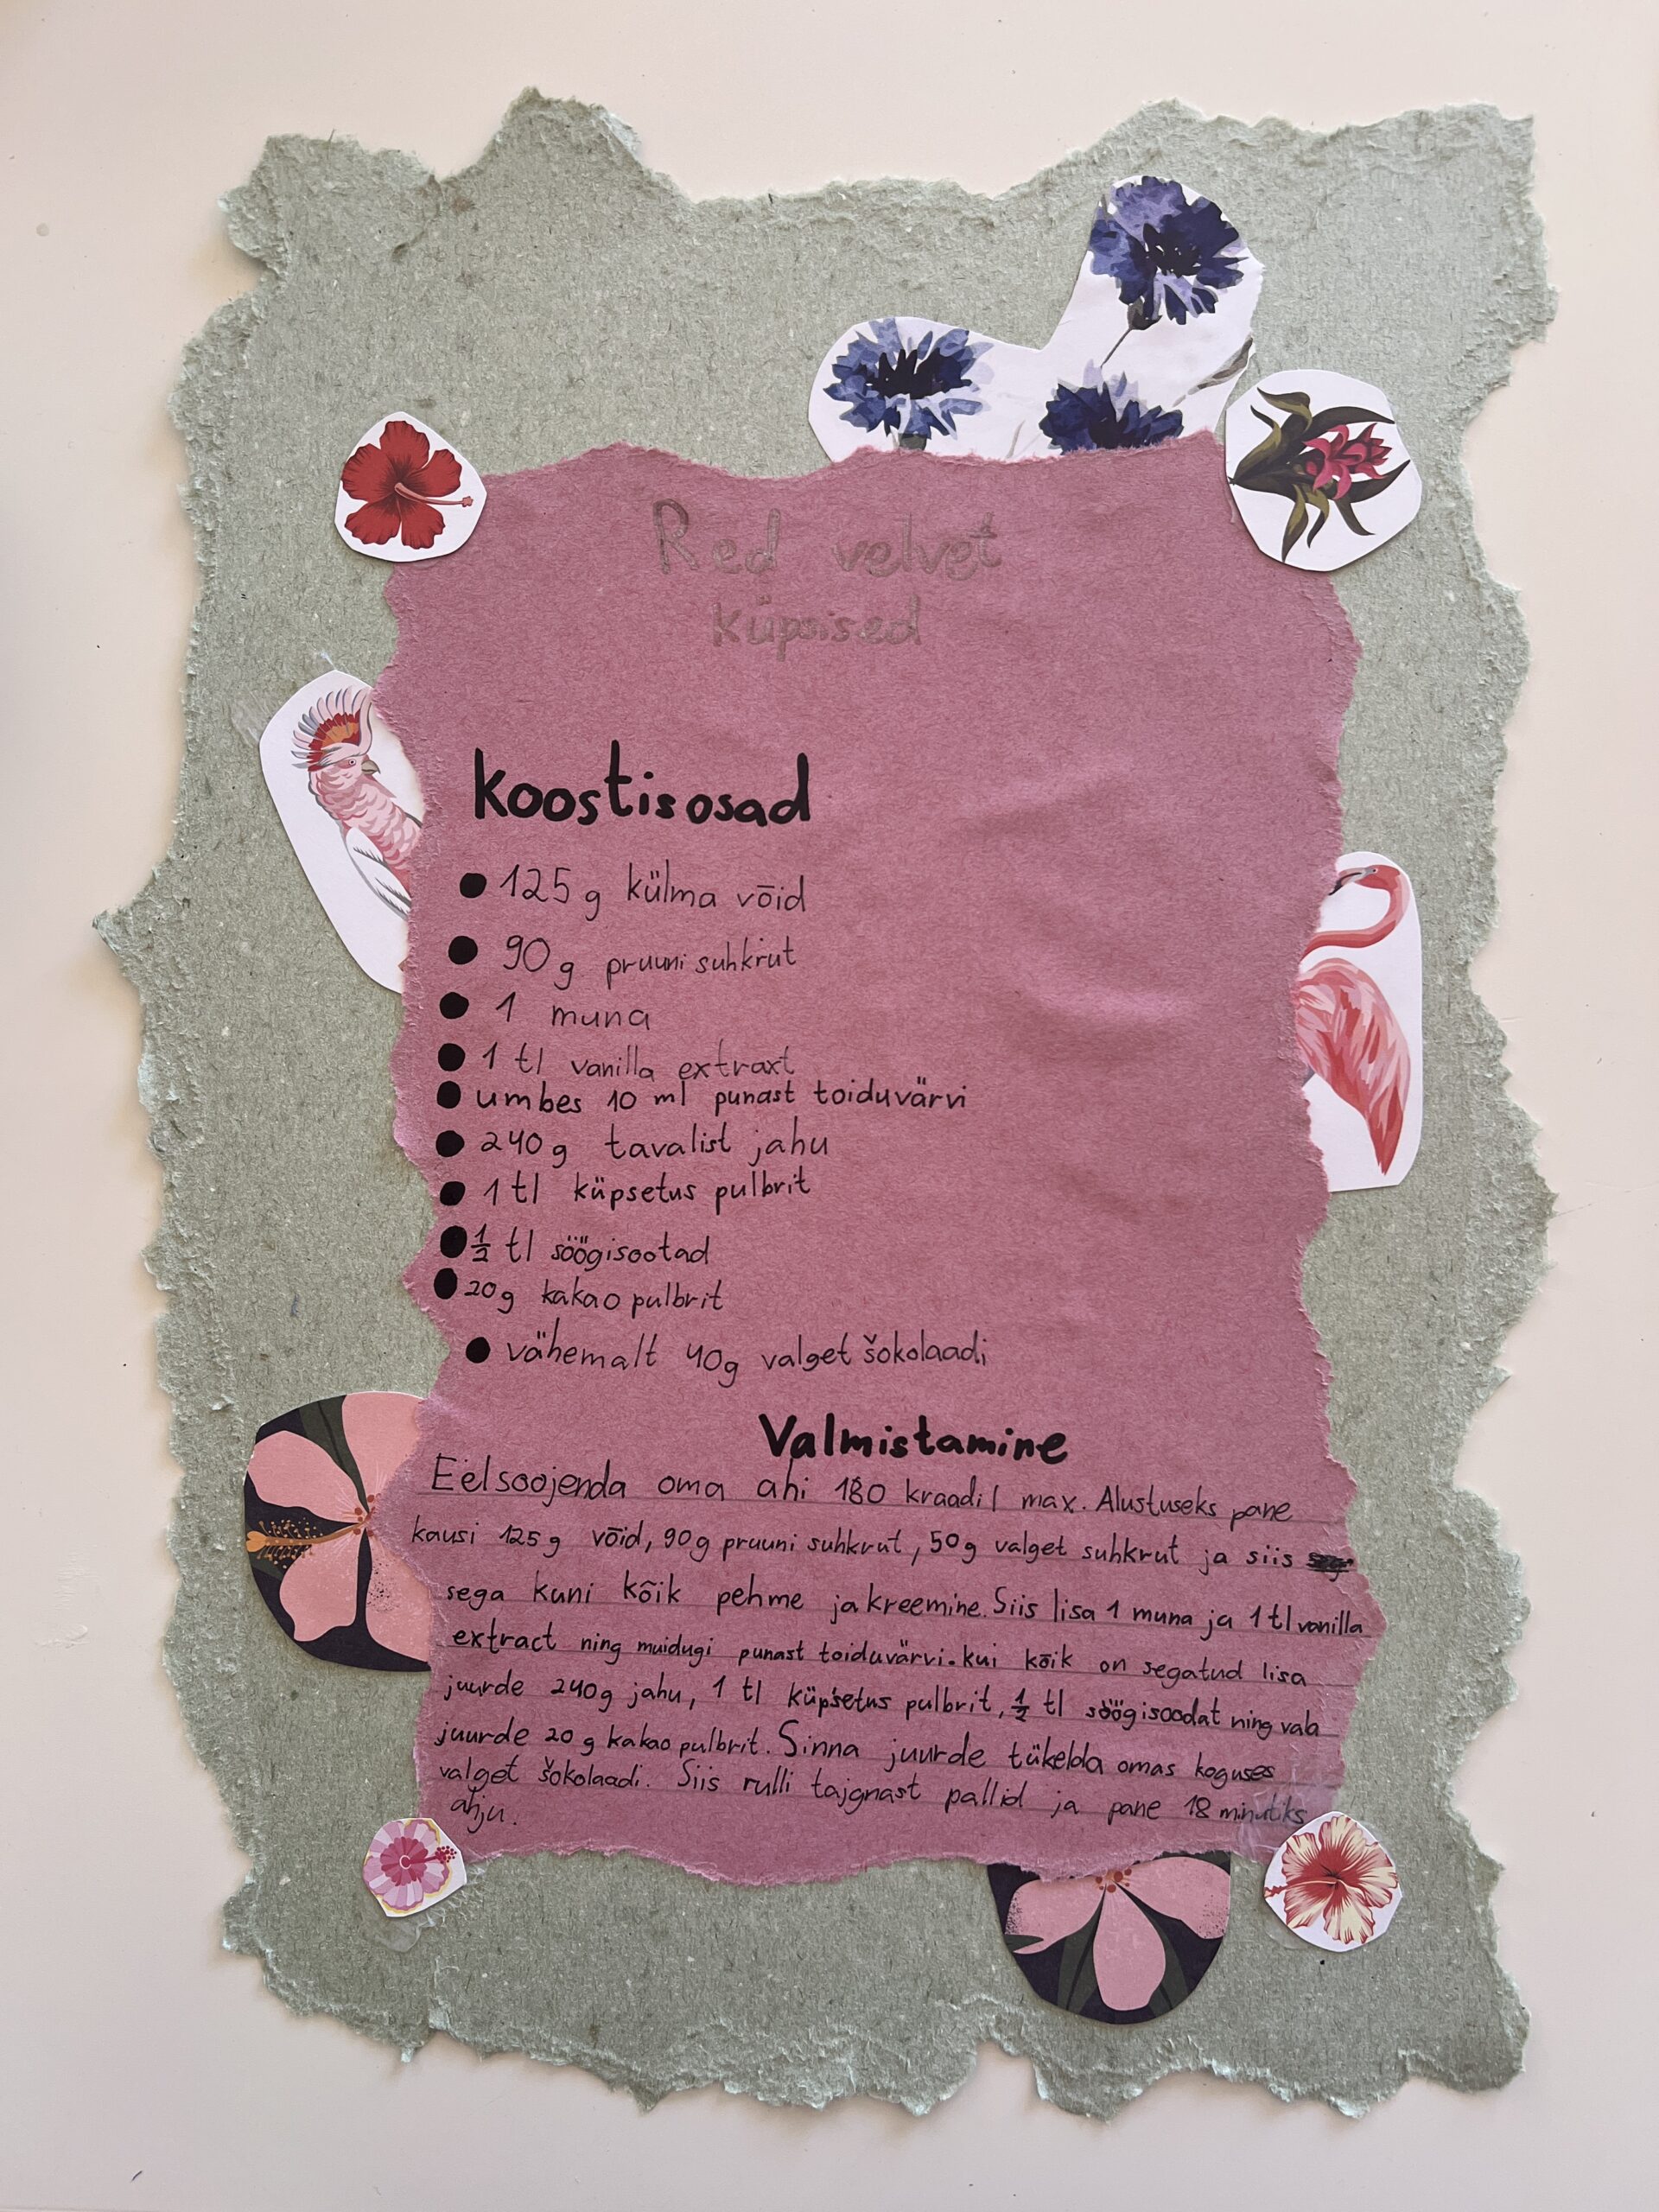 Red velvet
küpsised
koostisosad
125 g külma võid
90 g pruuni suhkrut
1 muna
1 tl vanilla extraxt
umbes 10 ml punast toiduvärvi
240 g tavalist jahu
1 tl küpsetus pulbrit
1/2 tl söögisootad
20 g kakao pulbrit
vähemalt 40g valget šokolaadi
Valmistamine
Eelsoojenda oma ahi 180 kraadil max. Alustuseks pane
kausi 125 g võid, 90 g pruuni suhkrut, 50 g valget suhkrut ja siis
sega kuni kõik pehme ja kreemine. Siis lisa 1 muna ja 1 tl vanilla
extract ning muidugi punast toiduvärvi. kui kõik on segatud lisa
juurde 240g jahu, 1 tl küpsetus pulbrit, 1/2 tl söögisoodat ning vala
juurde 20 g kakao pulbrit. Sinna juurde tükelda omas koguses
valget šokolaadi. Siis rulli tajgnast pallid ja pane 18 minutiks
ahju.